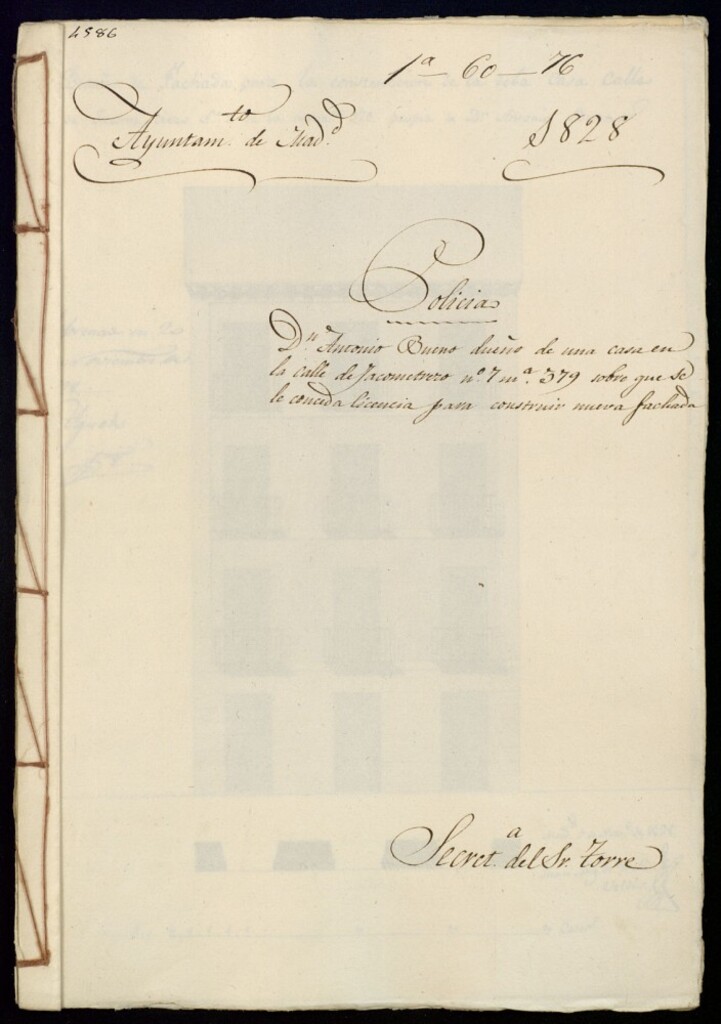 4586
1ª — 60 — 76
Ayuntam.to de Mad.d
1828
Policia
Dn. Antonio Bueno dueño de una casa en
la calle de Jacometrezo nº. 7 mª. 379 sobre que se
le conceda licencia para construir nueva fachada
Secret.a del Sr. Torre